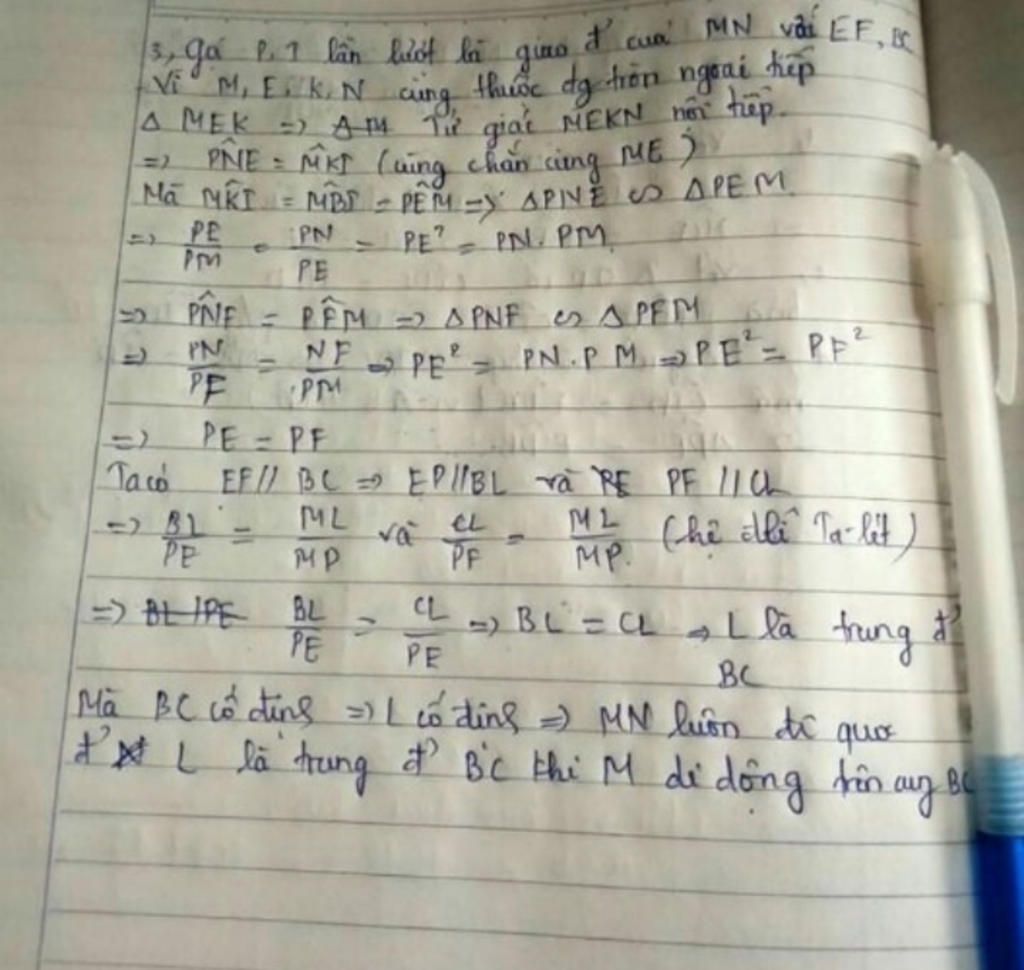 3, Gọi P, T lần lượt là giao đ' của MN với EF, BC
Vì M, E, K, N cùng thuộc đg tròn ngoại tiếp
Δ MEK => Tứ giác MEKN nội tiếp.
=> PN̂E = MK̂I (cùng chắn cung ME)
Mà MK̂I = MB̂I = PÊM => ΔPNE ∽ ΔPEM
=> PE/PM = PN/PE = PE² = PN.PM
=> PN̂F = PF̂M => ΔPNF ∽ ΔPFM
=> PN/PF = NF/PM => PE² = PN.PM => PE² = PF²
=> PE = PF
Ta có EF // BC => EP//BL và PF // CL
=> BL/PE = ML/MP và CL/PF = ML/MP. (hệ đlí Ta-lét)
=> BL/PE = CL/PE => BL = CL => L là trung đ'
BC
Mà BC cố định => L cố định => MN luôn đi qua
đ' L là trung đ' BC khi M di động trên cung BC